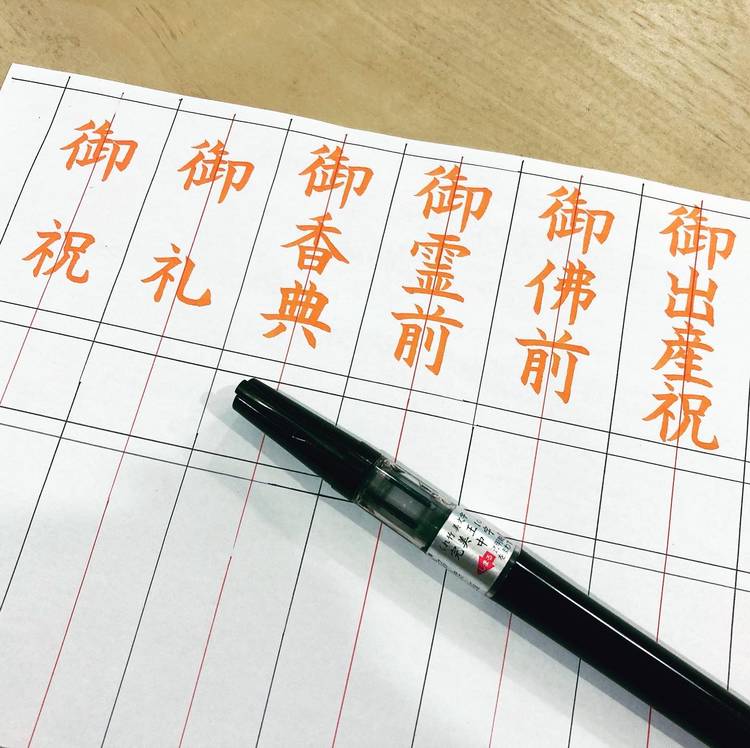 御出産祝
御佛前
御霊前
御香典
御礼
御祝